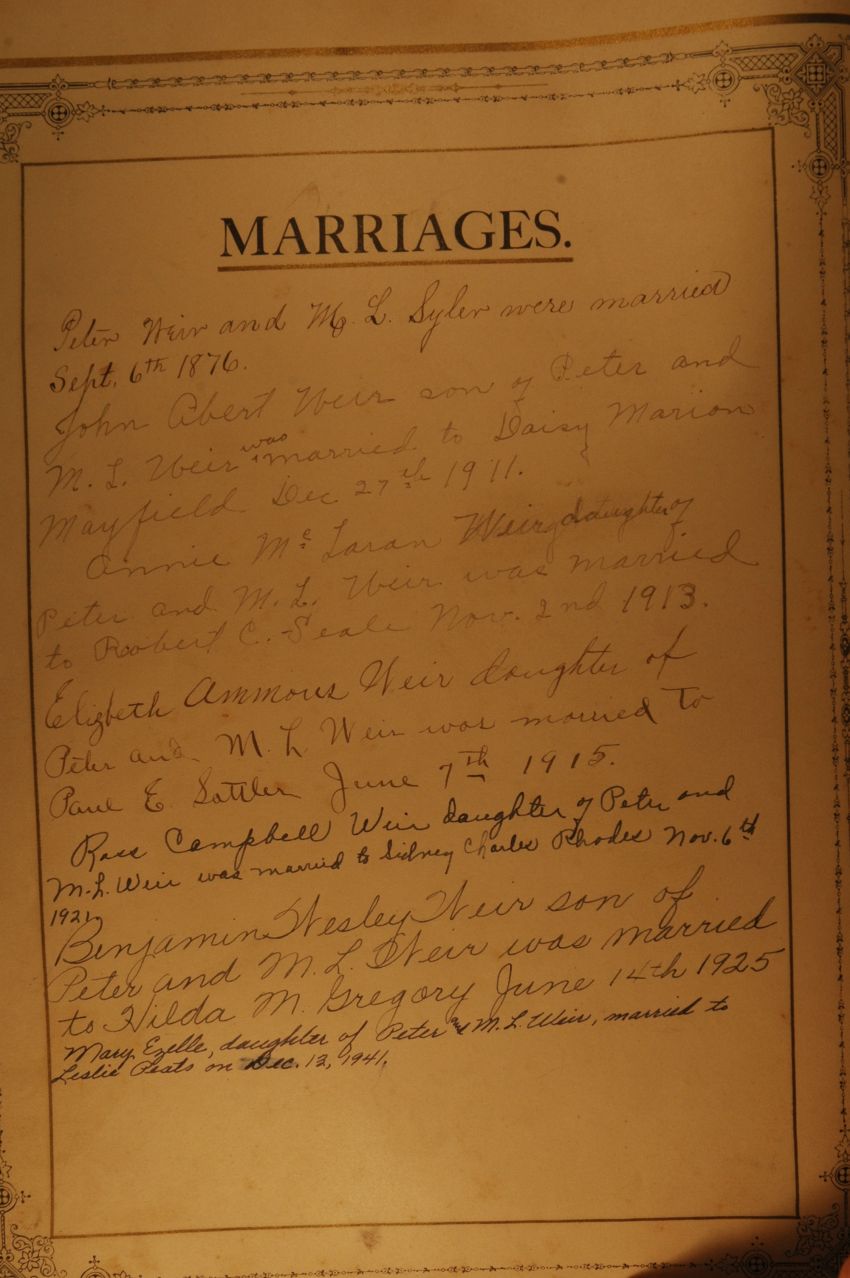 MARRIAGES.
Peter Weir and M. L. Syler were married
Sept. 6th 1876.
John Abert Weir son of Peter and
M. L. Weir was married to Daisy Marion
Mayfield Dec 27th 1911.
Annie Mc Laran Weir daughter of
Peter and M. L. Weir was married
to Robert C. Seale Nov. 2nd 1913.
Elizbeth Ammons Weir daughter of
Peter and M. L Weir was married To
Paul E Sattler June 7th 1915.
Rose Campbell Weir daughter of Peter and
M. L. Weir was married to Sidney Charles Rhodes Nov. 6th
1921.
Benjamin Wesley Weir son of
Peter and M. L. Weir was married
to Hilda M. Gregory June 14th 1925
Mary Ezelle, daughter of Peter and M. L. Weir, married to
Leslie on Dec. 12, 1941.